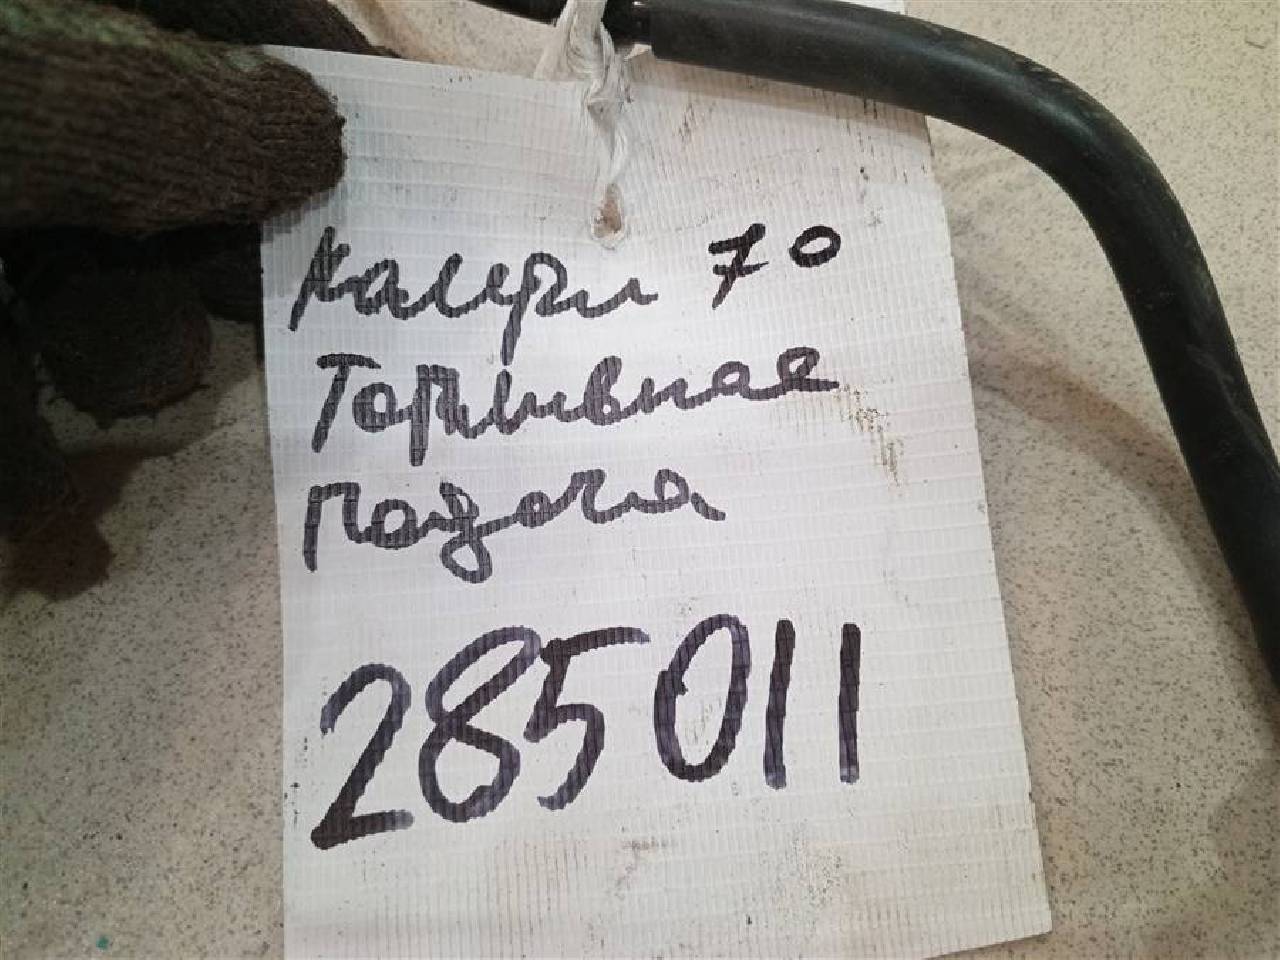 Камри 70
Топливная
подача
285011